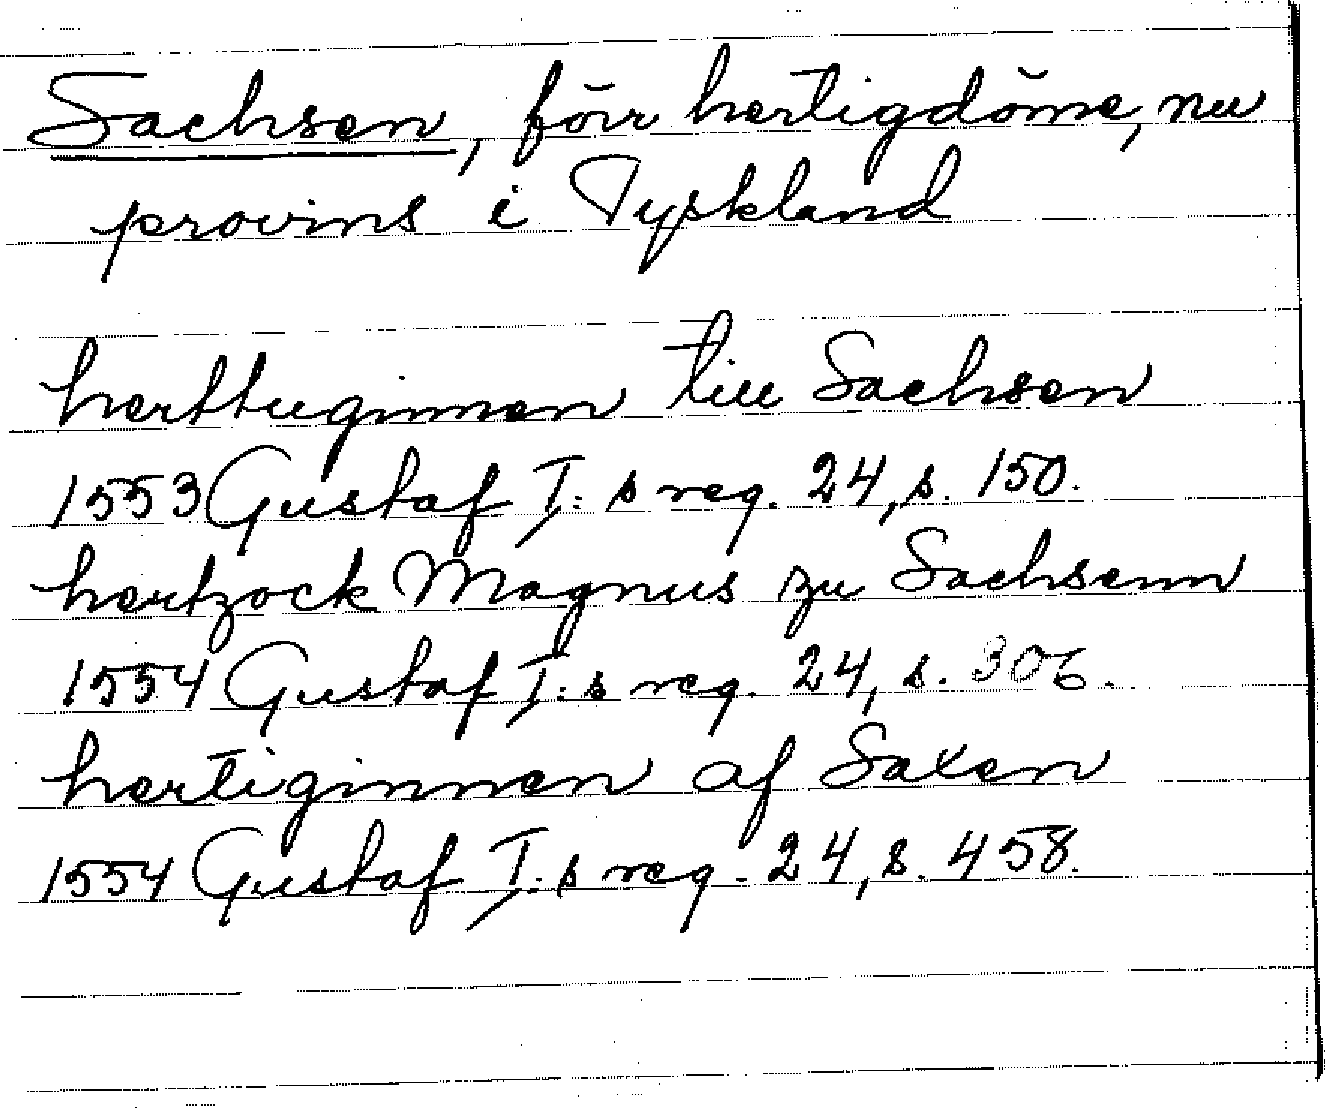 Sachsen, förr hertigdöme, nu
provins i Tyskland
herttuginnen till Sachsen
1553 Gustaf I:s reg. 24, s. 150.
hertzock Magnus zu Sachsenn
1554 Gustaf I:s reg. 24, s. 306.
hertiginnen af Saxen
1554 Gustaf I:s reg. 24, s. 458.